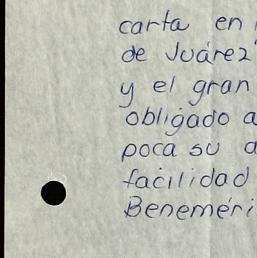 carta en
de Juárez
y el gran
obligado a
poca su
facilidad
Beneméri